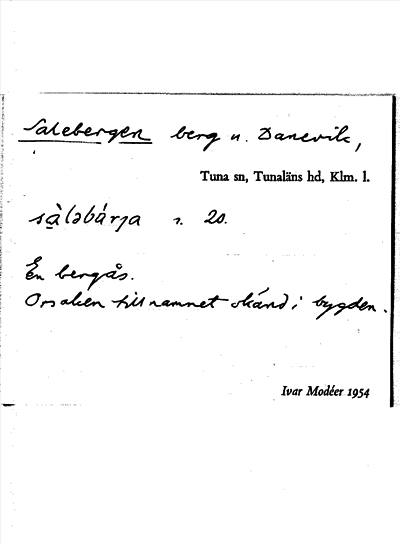 Salebergen berg u. Danevik,
Tuna sn, Tunaläns hd, Klm. l.
sàləbárja r. 20.
En bergås.
Orsaken till namnet okänd i bygden.
Ivar Modéer 1954